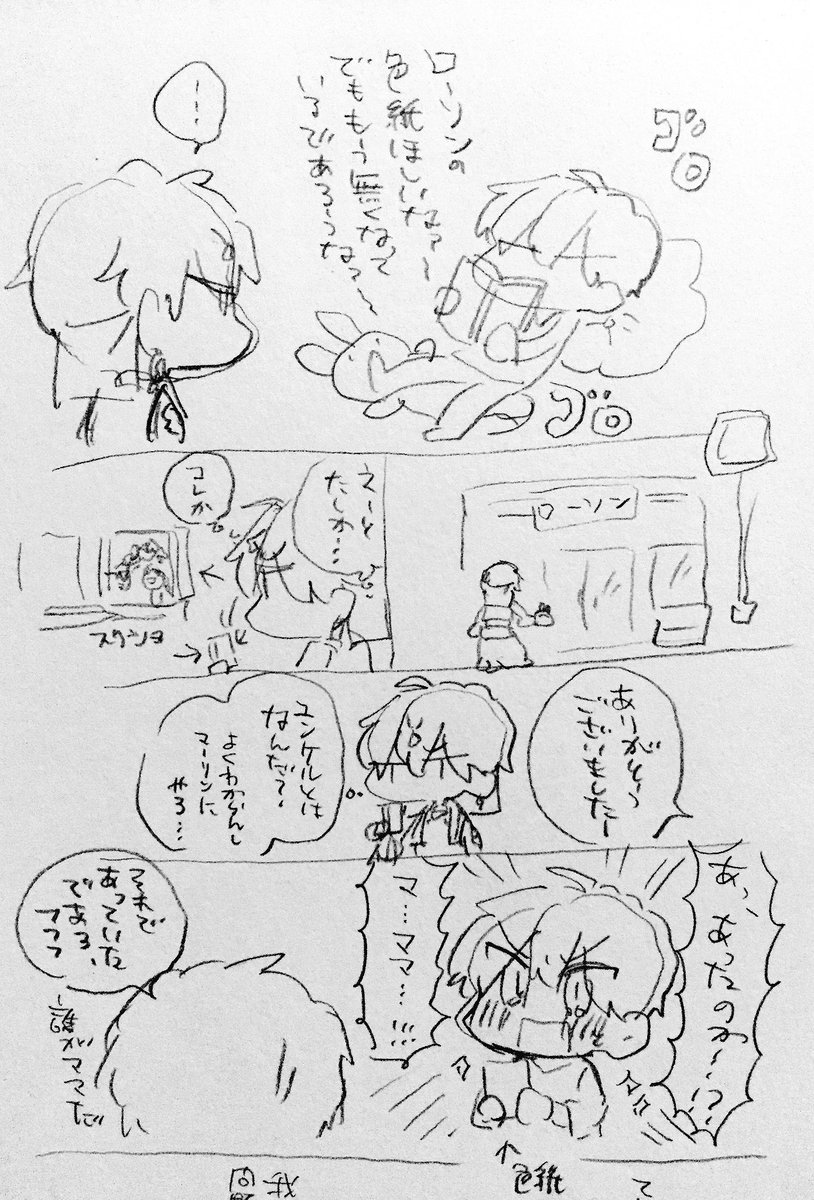 ゴロ
ローソンの
色紙ほしいなァ〜
でももう無くなって
いるであろうなァ〜
ゴロ
…
ローソン
えーと
たしか…
コレか
スクショ
ありがとう
ございましたー
ユンケルとは
なんだ?
よくわからんし
マーリンに
やろ…
あっ、あったのか〜!?
マ…ママ…!!!
色紙
それで
あっていた
であろ、
フフフ
誰がママだ